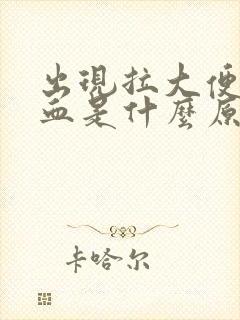 出現拉大便
血是什麼原
卡哈尔